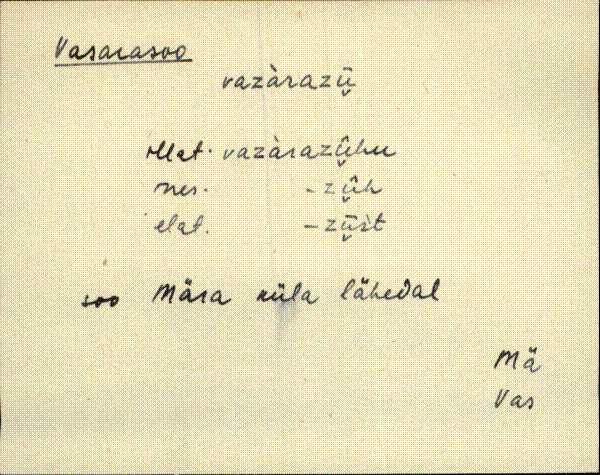 Vasarasoo
vazàrazǖ
illat. vazàrazǖhu
ines. -zǖh
elat. -zǖst
soo Mära küla lähedal
Mä
Vas